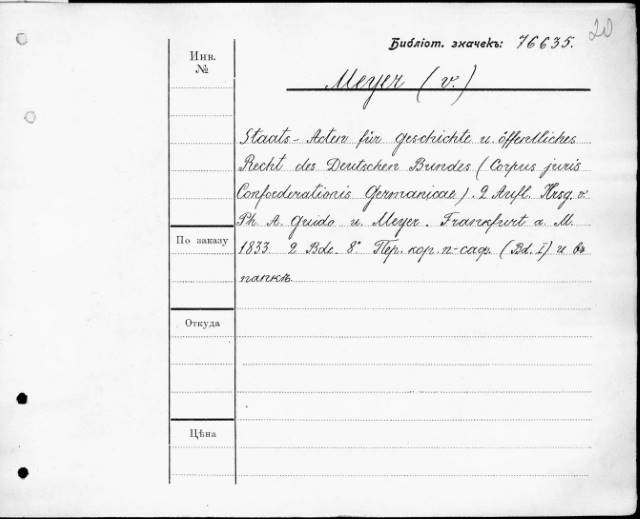 20
Библіот. значекъ: 76635.
Инв.
№
Meyer (v.)
Staats-Acten für Geschichte u. öffentliches
Recht des Deutschen Bundes (Corpus juris
Confoederationis Germanicae). 2 Aufl. Hrsg. v.
Ph. A. Guido v. Meyer. Frankfurt a. M.
1833. 2 Bde. 8° Пер. кор. п-саф. (Bd. I) и въ
папкѣ.
По заказу
Откуда
Цѣна